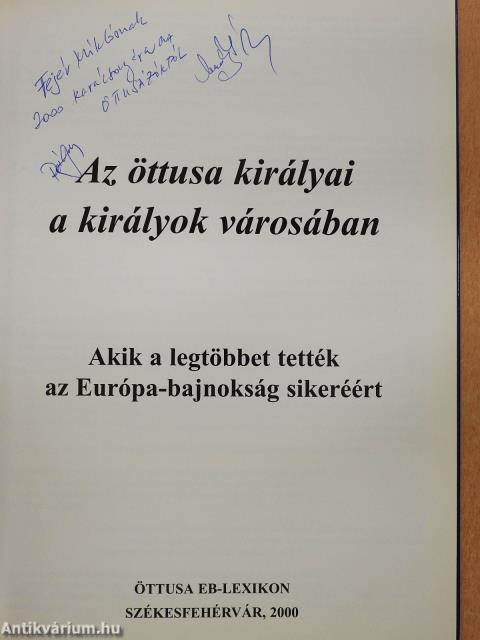 Fejér Miklósnak
2000 karácsonyára az
öttusázóktól
Az öttusa királyai
a királyok városában
Akik a legtöbbet tették
az Európa-bajnokság sikeréért
ÖTTUSA EB-LEXIKON
SZÉKESFEHÉRVÁR, 2000
Antikvárium.hu